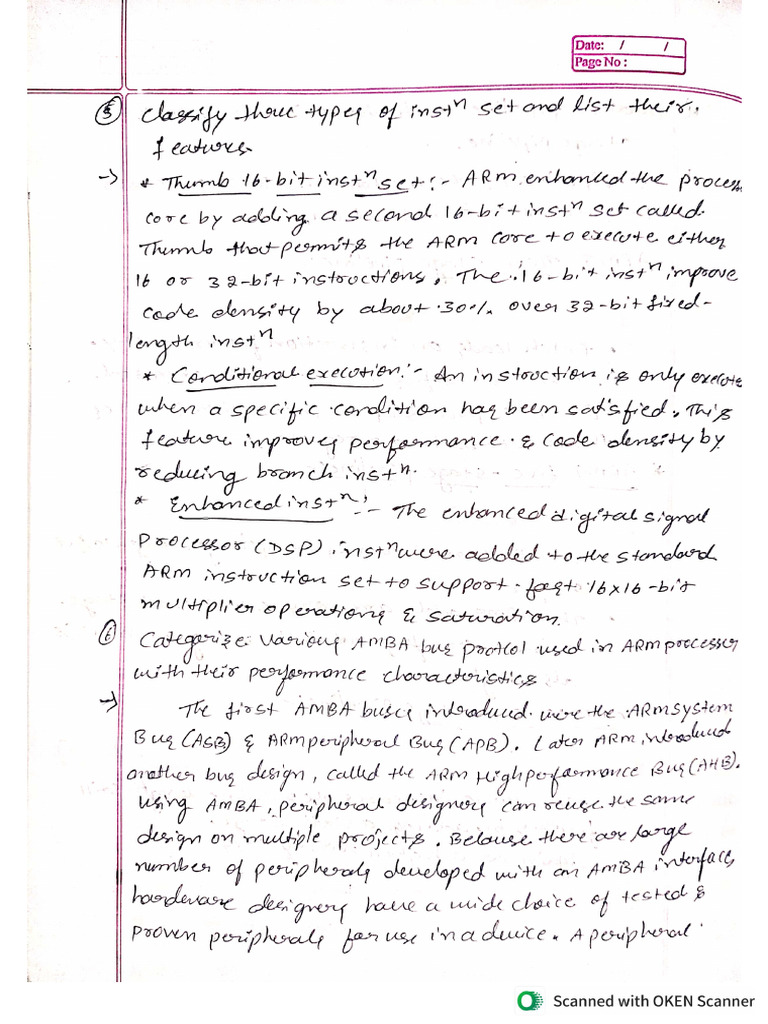 Date: / /
Page No :
⑤ Classify three types of instⁿ set and list their.
features
→ * Thumb 16-bit instⁿ set :- ARM enhanced the proces
core by adding a second 16-bit instⁿ set called
Thumb that permits the ARM core to execute either
16 or 32-bit instructions. The 16-bit instⁿ improve
code density by about 30% over 32-bit fixed-
length instⁿ
* Conditional execution :- An instruction is only execute
when a specific condition has been satsfied. This
feature improves performance & code density by
reducing branch instⁿ.
* Enhanced instⁿ :- The enhanced digital signal
Processor (DSP) instⁿ were added to the standard
ARM instruction set to support fast 16x16-bit
multiplier operations & saturation.
⑥ Categorize various AMBA bus protcol used in ARM processer
with their performance characteristics
→ The first AMBA buses introduced were the ARM system
Bus (ASB) & ARM peripheral Bus (APB). Later ARM introduced
another bus design, called the ARM High performance Bus (AHB).
using AMBA, peripheral designers can reuse the same
design on multiple projects. Because there are large
number of peripherals developed with an AMBA interface,
hardware designers have a wide choice of tested &
proven peripherals for use in a device. A peripheral
Scanned with OKEN Scanner